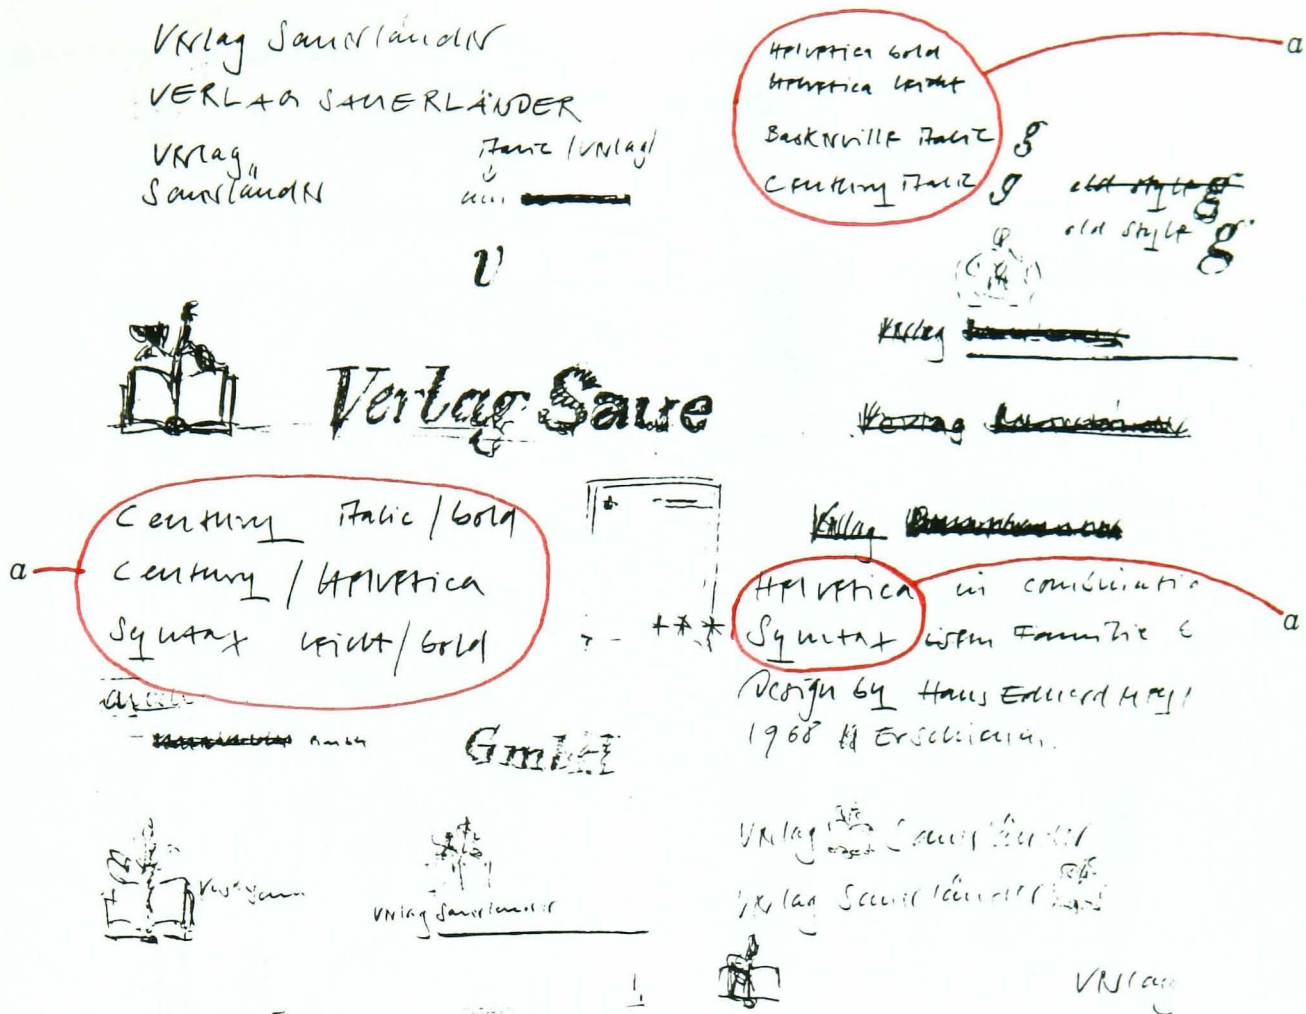 Verlag Sauerländer
VERLAG SAUERLÄNDER
Verlag
Sauerländer
italic (Verlag)
v
Helvetica bold
Helvetica leicht
Baskerville italic g
Century italic g
old style g
old style g
a
Verlag
Verlag Saue
Verlag
Century italic / bold
Century / Helvetica
Syntax leicht / bold
a
Verlag
Helvetica in combinatio
Syntax Familie
Design by Hans Eduard
1968 Erschienen.
a
GmbH
GmbH
Verlag Sauerländer
Verlag Sauerländer
Verlag Sauerländer
Verlag